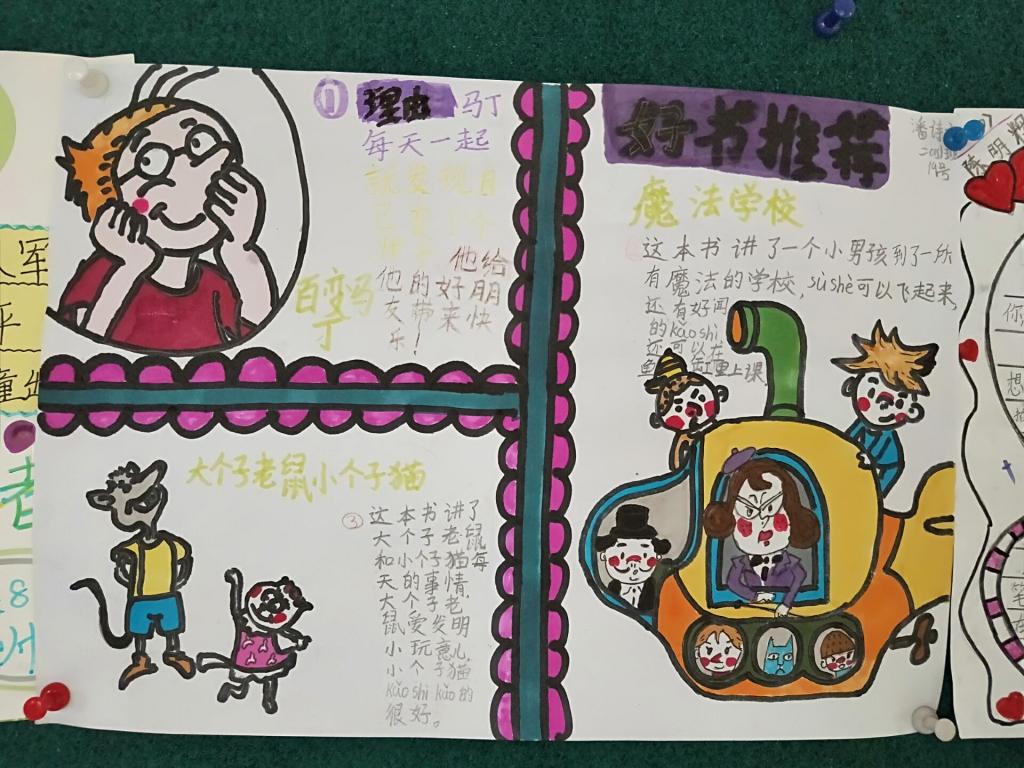 ① 理由 马丁
每天一起
就发现自
己变了个
样子
他给
他的好朋
友带来快
乐!
百变马
丁
大个子老鼠小个子猫
③ 这本书讲了
大个子老鼠
和小个子猫每
天的事情.
大个子老
鼠爱发明
小玩意儿
小个子猫
kǎo shì kǎo的
很好。
好书推荐
魔法学校
这本书讲了一个小男孩到了一所
有魔法的学校,sùshè可以飞起来,
还有好闻
的kǎoshì
还可以在
鱼缸里上课
19号
陈明
军
乎
童
老
8
你
想